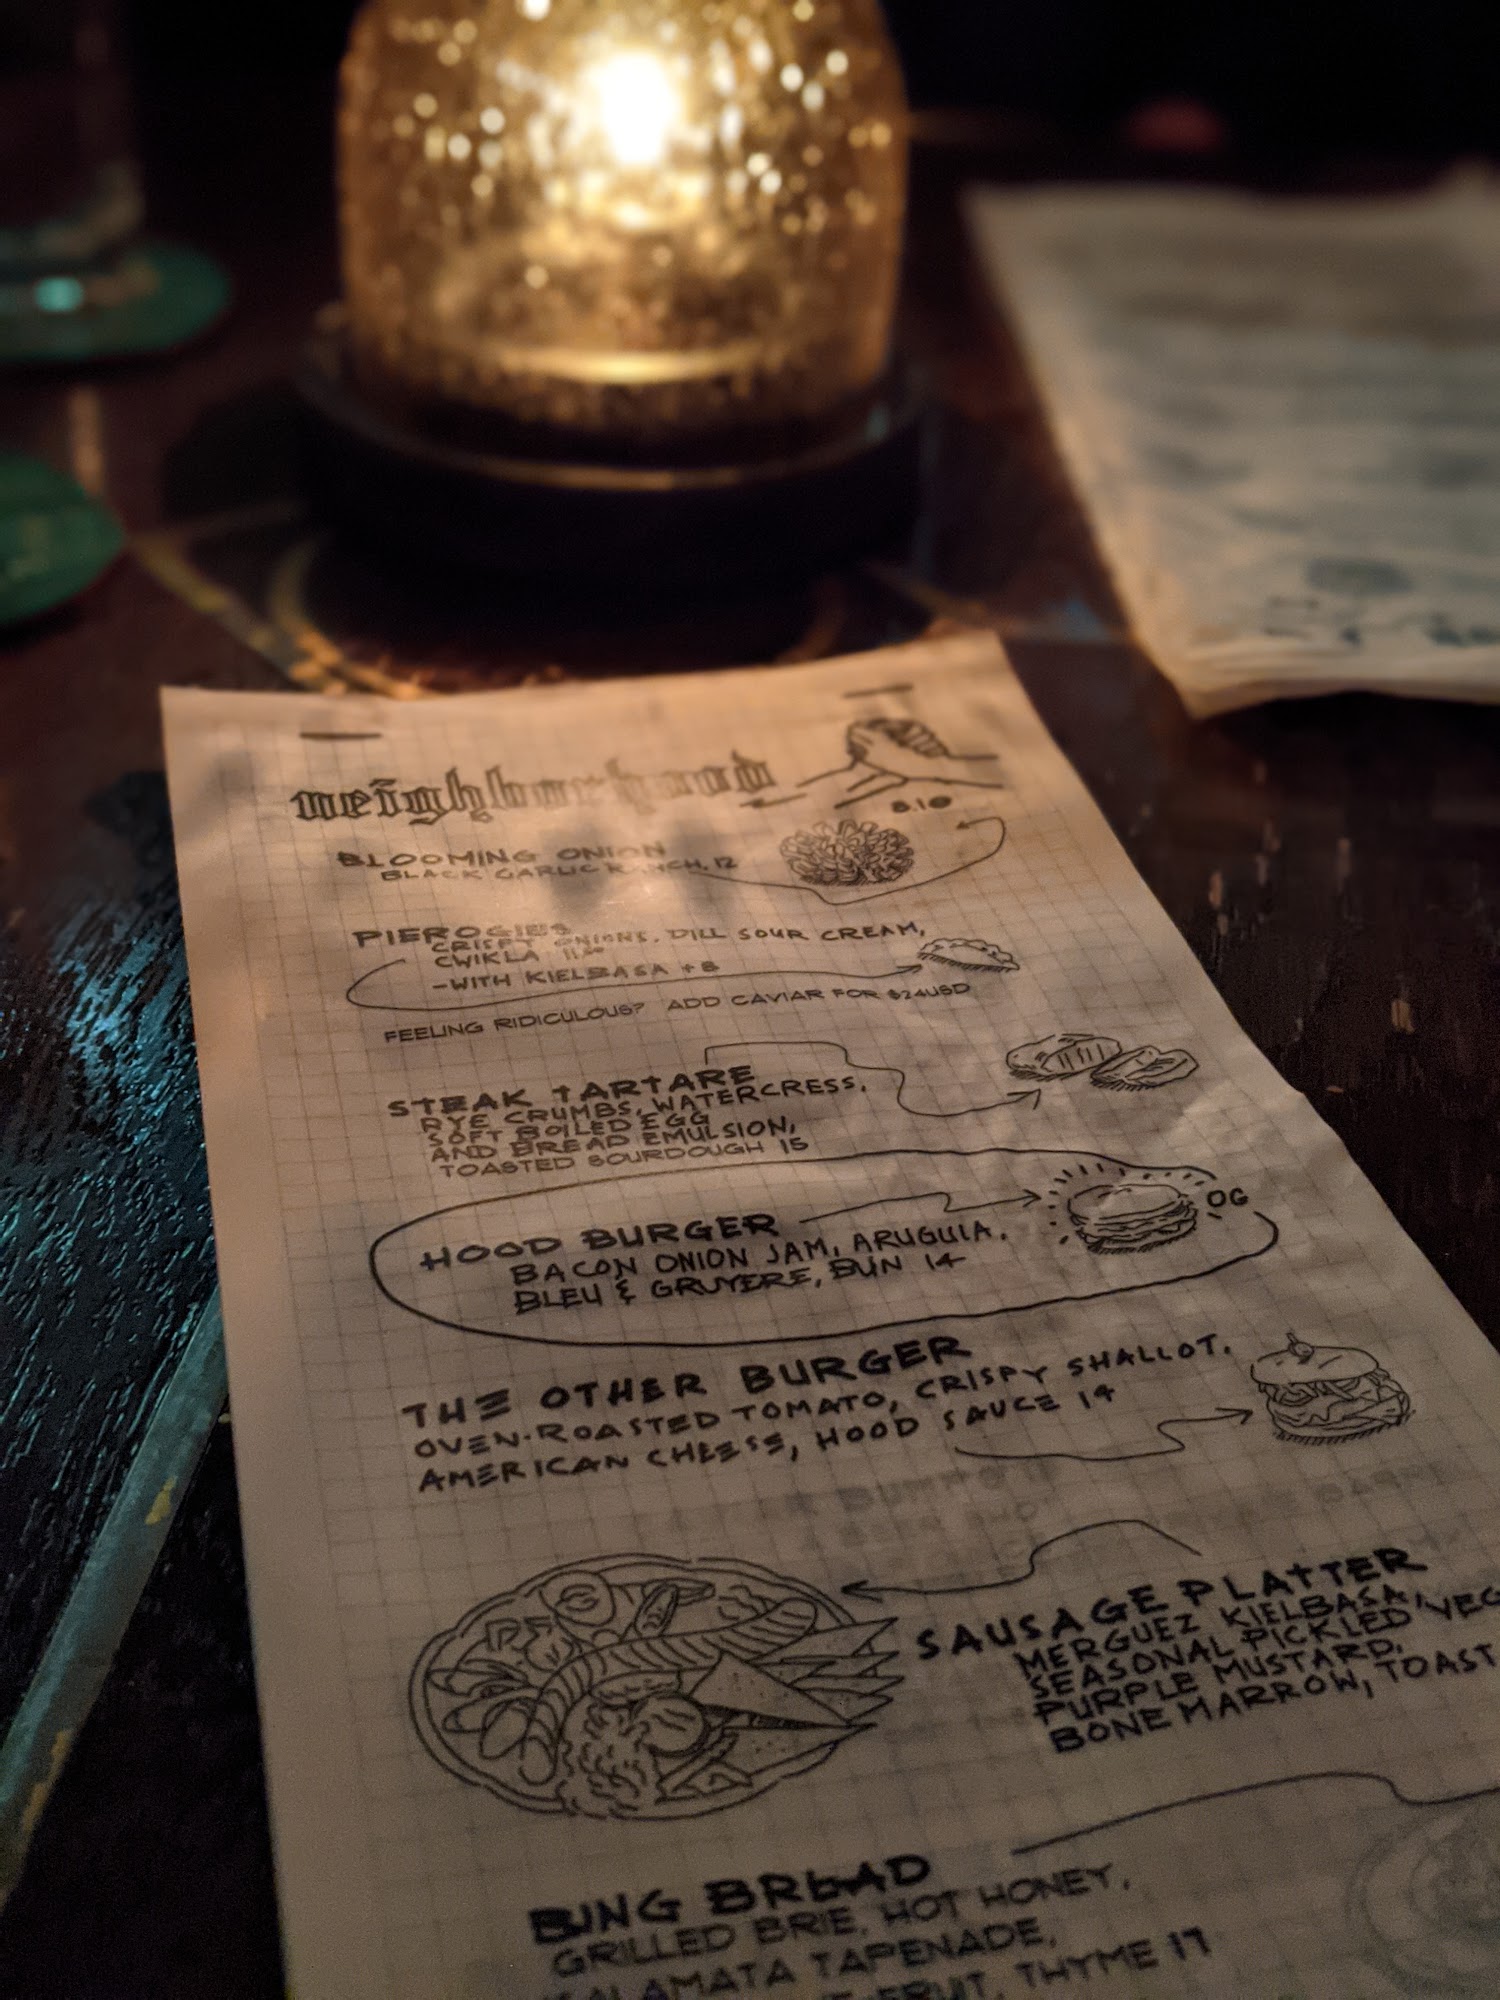 neighborhood
8.10
BLOOMING ONION
BLACK GARLIC RANCH, 12
PIEROGIES
CRISPY ONIONS, DILL SOUR CREAM,
CWIKLA 11
-WITH KIELBASA +8
FEELING RIDICULOUS? ADD CAVIAR FOR $24USD
STEAK TARTARE
RYE CRUMBS, WATERCRESS,
SOFT BOILED EGG
AND BREAD EMULSION,
TOASTED SOURDOUGH 15
HOOD BURGER
OG
BACON ONION JAM, ARUGULA,
BLEU & GRUYERE, BUN 14
THE OTHER BURGER
OVEN-ROASTED TOMATO, CRISPY SHALLOT,
AMERICAN CHEESE, HOOD SAUCE 14
SAUSAGE PLATTER
MERGUEZ KIELBASA,
SEASONAL PICKLED VEG
PURPLE MUSTARD,
BONE MARROW, TOAST
BING BREAD
GRILLED BRIE, HOT HONEY,
KALAMATA TAPENADE,
FRUIT, THYME 17